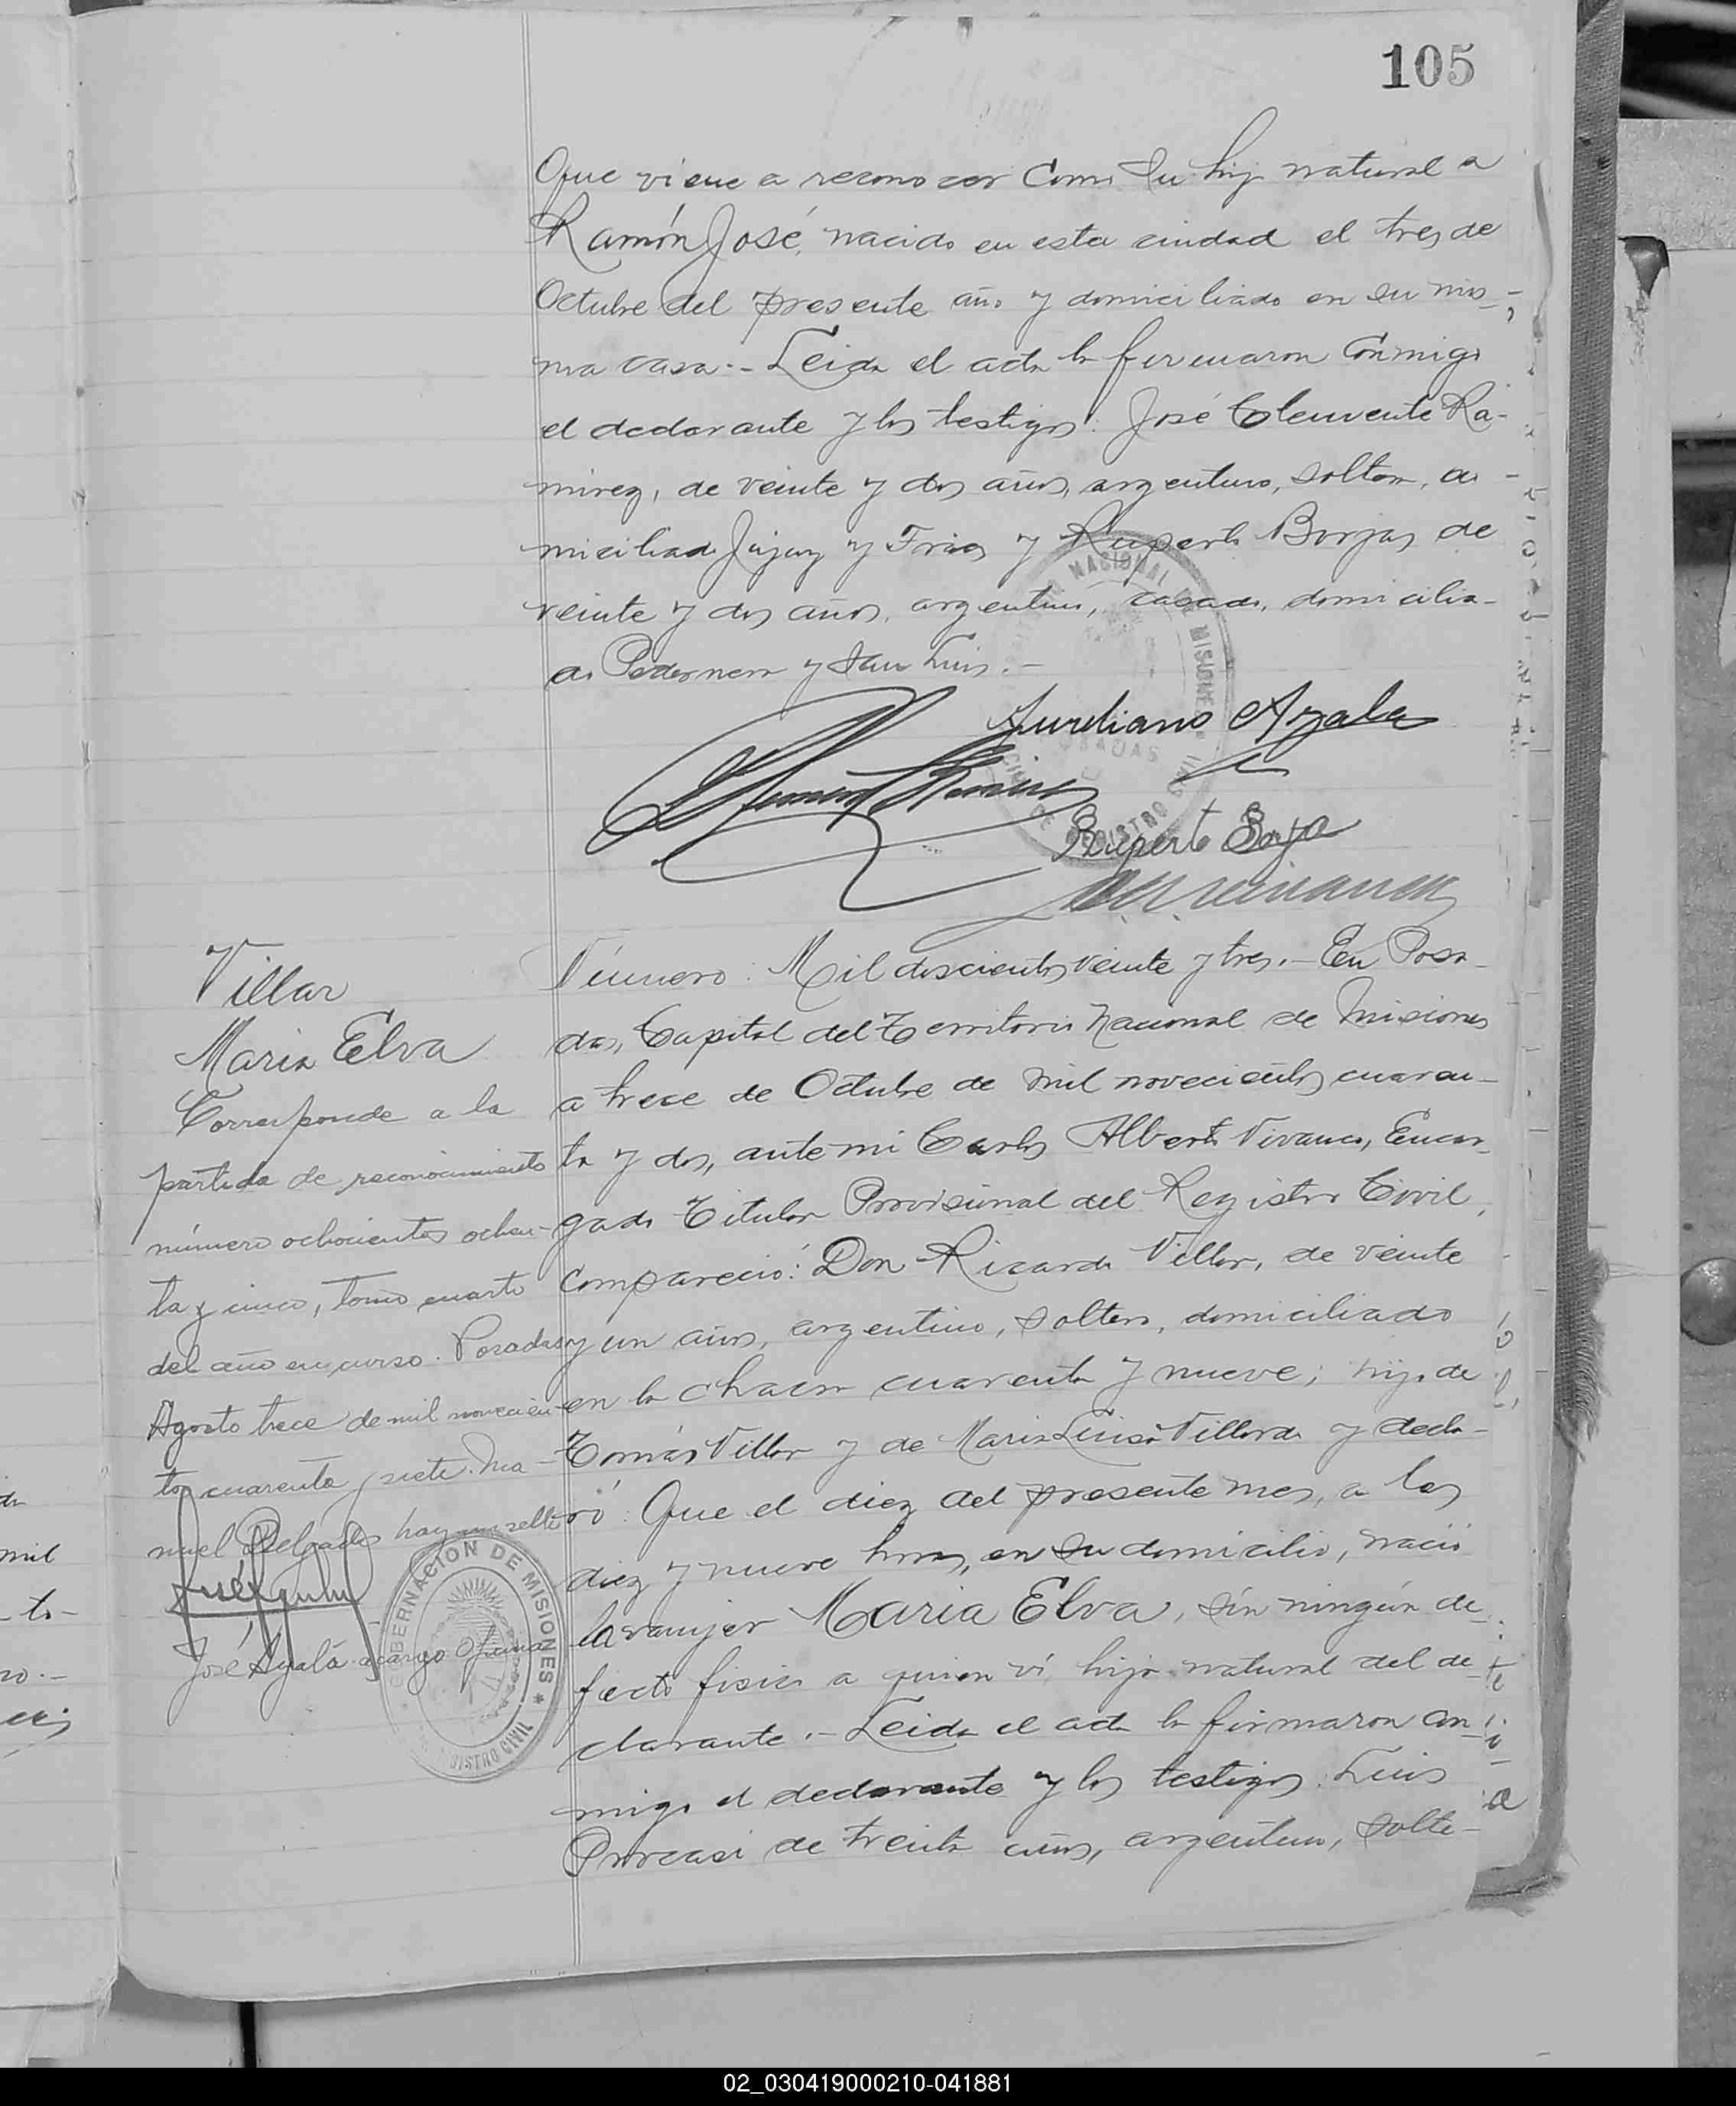 105
Que viene a reconocer como su hijo natural a
Ramón José, nacido en esta ciudad el tres de
Octubre del presente año y domiciliado en su mis-
ma casa.- Leida el acta la firmaron conmigo
el declarante y los testigos: José Clemente Ra-
mirez, de veinte y dos años, argentino, soltero, do
miciliado Jujuy y Frias y Ruperto Borjas de
veinte y dos años, argentino, casado, domicilia-
do Pedernera y San Luis.-
Aureliano Ayala
Ruperto Borja
Villar
Maria Elva
Corresponde a la
partida de reconocimiento
número ochocientos ochen-
ta y cinco, tomo cuarto
del año en curso. Posadas
Agosto trece de mil novecien-
tos cuarenta y siete. Ma-
nuel Delgado hay un sello
José Ayala
José Ayala a cargo Oficina
GOBERNACION DE MISIONES
REGISTRO CIVIL
Número: Mil doscientos veinte y tres.- En Posa-
das, Capital del Territorio Nacional de Misiones
a trece de Octubre de mil novecientos cuaren-
ta y dos, ante mi Carlos Alberto Vivanco, Encar-
gado Titular Provisional del Registro Civil,
compareció: Don Ricardo Villar, de veinte
y un años, argentino, soltero, domiciliado
en la chacra cuarenta y nueve; hijo de
Tomás Villar y de Maria Luisa Villarde y decla-
ró: Que el diez del presente mes, a las
diez y nueve horas, en su domicilio, nació
la mujer Maria Elva, sin ningún de-
fecto fisico a quien vi, hija natural del de-
clarante.- Leida el acta la firmaron con
migo el declarante y los testigos: Luis
de treinta años, argentino, solte-
02_030419000210-041881